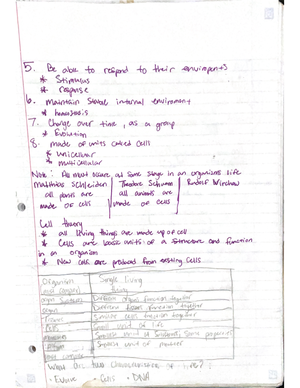 5. Be able to respond to their enviroments
* Stimulus
* Response
6. Maintain Stable internal enviroment
* homeostasis
7. Change over time, as a group
* Evolution
8. made of units called Cells
* Unicellular
* Multicellular
Note: All must occure at some stage in an organisms life
Matthias Schleiden | Theodore Schwann | Rudolf Virchow
all plants are | all animals are
made of cells | made of cells
Cell theory
* all living things are made up of cell
* Cells are basic units of a structure and function
in an organism
* New cells are produced from existing cells
Organism | Single living
thing
Different organs function together
Different tissues function together
cells function together
Small unit of life
Smallest unit of matter
What are two characteristics of life?
- Evolve - Cells - DNA